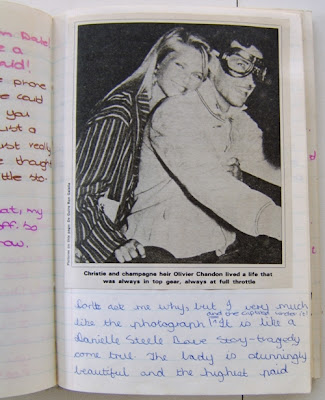 Date!
e a
uld!
e phone
e could
you
ust a
ust really
e though
ttle sto-
at, my
off to
now.
Christie and champagne heir Olivier Chandon lived a life that
was always in top gear, always at full throttle
Don't ask me why, but I very much
and the caption under it!
like the photograph! It is like a
Danielle Steele Love Story-tragedy
come true. The lady is stunningly
beautiful and the highest paid